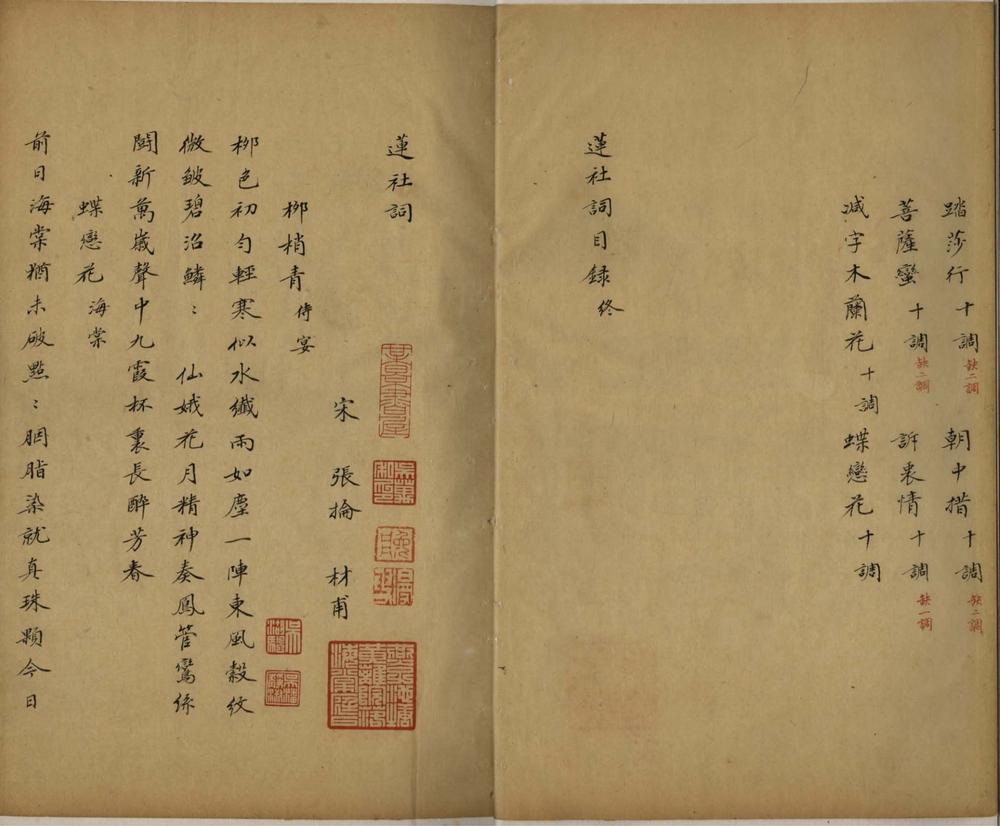 踏莎行十調缺二調 朝中措十調缺二調
菩薩蠻十調缺二調 訴衷情十調缺一調
減字木蘭花十調 蝶戀花十調
蓮社詞目録終
蓮社詞
宋 張掄 材甫
栁梢青侍宴
栁色初勻輕寒似水纖雨如塵一陣東風縠紋
微皺碧沼鱗〻 仙娥花月精神奏鳳管鸞絲
鬪新萬歲聲中九霞杯裏長醉芳春
蝶戀花海棠
前日海棠猶未破點〻胭脂染就真珠顆今日